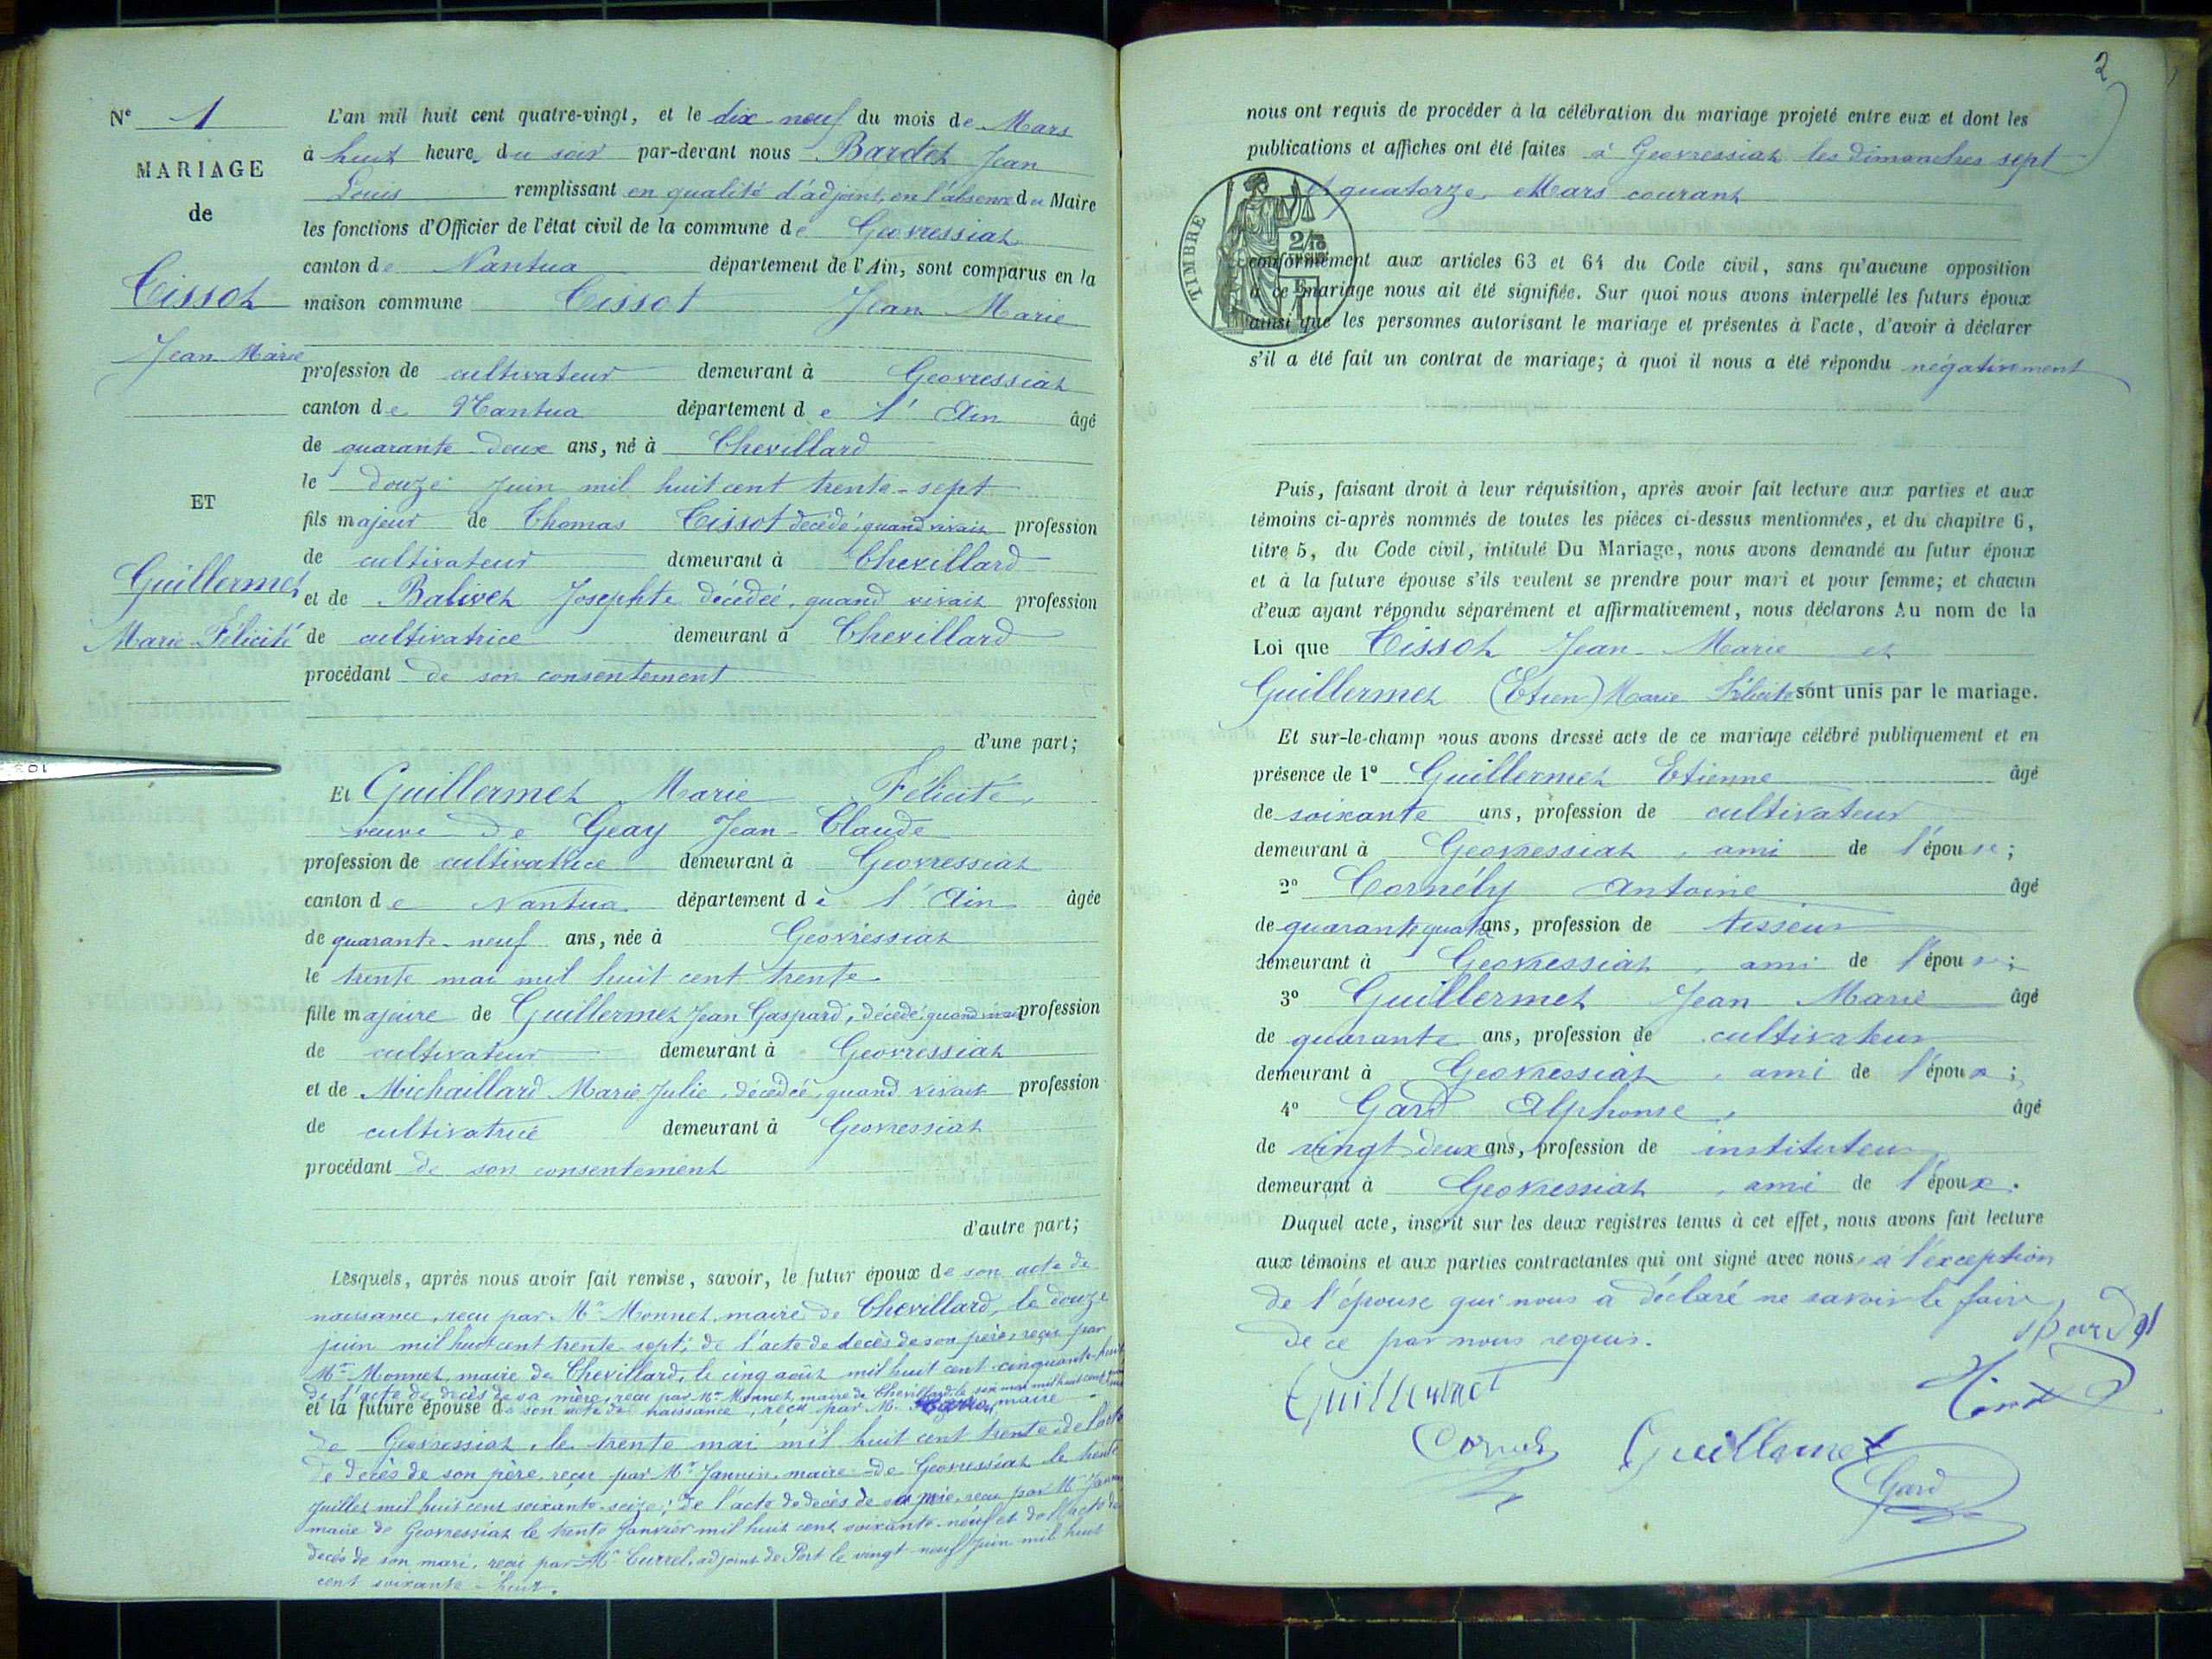 N° 1
MARIAGE
de
Tissot
Jean Marie
ET
Guillermet
Marie Félicité
L'an mil huit cent quatre-vingt, et le dix-neuf du mois de Mars
à huit heures du soir par-devant nous Bardet Jean
Louis remplissant en qualité d'adjoint, en l'absence du Maire
les fonctions d'Officier de l'état civil de la commune de Geovressiat
canton de Nantua département de l'Ain, sont comparus en la
maison commune Tissot Jean Marie
profession de cultivateur demeurant à Geovressiat
canton de Nantua département de l'Ain âgé
de quarante-deux ans, né à Chevillard
le douze juin mil huit cent trente-sept
fils majeur de Thomas Tissot décédé, quand vivait profession
de cultivateur demeurant à Chevillard
et de Balivet Josephte décédée, quand vivait profession
de cultivatrice demeurant à Chevillard
procédant de son consentement
d'une part;
Et Guillermet Marie Félicité,
veuve de Geay Jean-Claude
profession de cultivatrice demeurant à Geovressiat
canton de Nantua département de l'Ain âgée
de quarante-neuf ans, née à Geovressiat
le trente mai mil huit cent trente
fille majeure de Guillermet Jean Gaspard, décédé, quand vivait profession
de cultivateur demeurant à Geovressiat
et de Michaillard Marie Julie, décédée, quand vivait profession
de cultivatrice demeurant à Geovressiat
procédant de son consentement
d'autre part;
Lesquels, après nous avoir fait remise, savoir, le futur époux de son acte de
naissance, reçu par Mr Monnet, maire de Chevillard, le douze
juin mil huit cent trente-sept; de l'acte de décès de son père, reçu par
Mr Monnet, maire de Chevillard, le cinq août mil huit cent cinquante-huit
de l'acte de décès de sa mère, reçu par Mr Monnet, maire de Chevillard, le six mai mil huit cent
et la future épouse de son acte de naissance, reçu par M. maire
de Geovressiat, le trente mai mil huit cent trente; de l'acte
de décès de son père, reçu par Mr Jannin, maire de Geovressiat le trente
juillet mil huit cent soixante-seize; de l'acte de décès de sa mère, reçu par Mr
maire de Geovressiat le trente Janvier mil huit cent soixante-neuf et de l'acte de
décès de son mari, reçu par Mr Curret, adjoint de Port le vingt-neuf juin mil huit
cent soixante-huit.
2
nous ont requis de procéder à la célébration du mariage projeté entre eux et dont les
publications et affiches ont été faites à Geovressiat les dimanches sept
et quatorze Mars courant
TIMBRE
conformément aux articles 63 et 64 du Code civil, sans qu'aucune opposition
à ce mariage nous ait été signifiée. Sur quoi nous avons interpellé les futurs époux
ainsi que les personnes autorisant le mariage et présentes à l'acte, d'avoir à déclarer
s'il a été fait un contrat de mariage; à quoi il nous a été répondu négativement
Puis, faisant droit à leur réquisition, après avoir fait lecture aux parties et aux
témoins ci-après nommés de toutes les pièces ci-dessus mentionnées, et du chapitre 6,
titre 5, du Code civil, intitulé Du Mariage, nous avons demandé au futur époux
et à la future épouse s'ils veulent se prendre pour mari et pour femme; et chacun
d'eux ayant répondu séparément et affirmativement, nous déclarons Au nom de la
Loi que Tissot Jean-Marie et
Guillermet (Etien) Marie Félicité sont unis par le mariage.
Et sur-le-champ nous avons dressé acte de ce mariage célébré publiquement et en
présence de 1° Guillermet Etienne âgé
de soixante ans, profession de cultivateur
demeurant à Geovressiat, ami de l'épouse;
2° Cornély Antoine âgé
de quarante quatre ans, profession de tisseur
demeurant à Geovressiat, ami de l'épouse;
3° Guillermet Jean Marie âgé
de quarante ans, profession de cultivateur
demeurant à Geovressiat, ami de l'époux;
4° Gard Alphonse, âgé
de vingt-deux ans, profession de instituteur
demeurant à Geovressiat, ami de l'époux.
Duquel acte, inscrit sur les deux registres tenus à cet effet, nous avons fait lecture
aux témoins et aux parties contractantes qui ont signé avec nous, à l'exception
de l'épouse qui nous a déclaré ne savoir le faire
de ce par nous requis.
Bardet
Guillermet
Guillermet
Gard